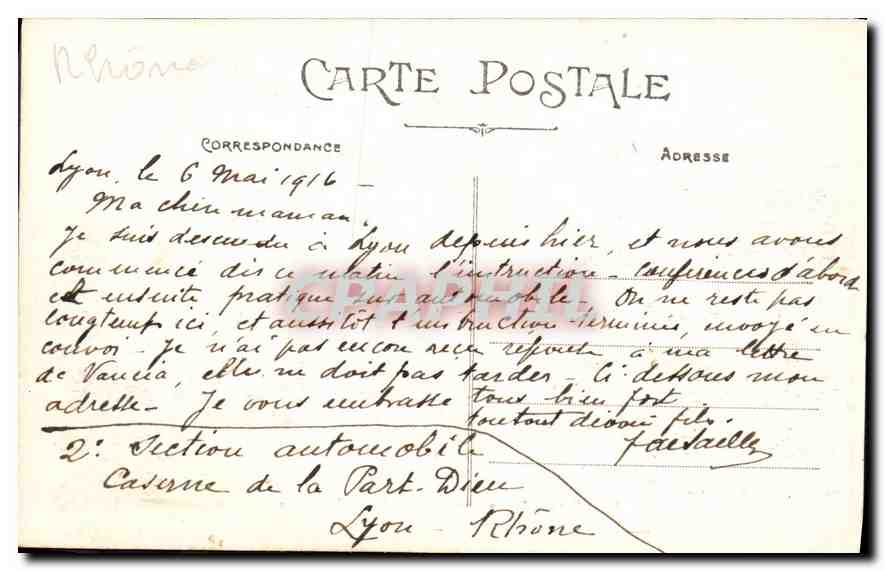 Rhône
CARTE POSTALE
CORRESPONDANCE
ADRESSE
Lyon, le 6 Mai 1916
Ma chère maman,
Je suis descendu à Lyon depuis hier, et nous avons
commencé dès ce matin l'instruction - conférences d'abord
et ensuite pratique sur automobile - On ne reste pas
longtemps ici, et aussitôt l'instruction terminée, envoyé en
convoi - Je n'ai pas encore reçu réponse à ma lettre
de Vancia, elle ne doit pas tarder - Ci dessous mon
adresse - Je vous embrasse tous bien fort.
ton tout dévoué fils.
2e Section automobile
Caserne de la Part-Dieu
Lyon - Rhône
CPAPHIL